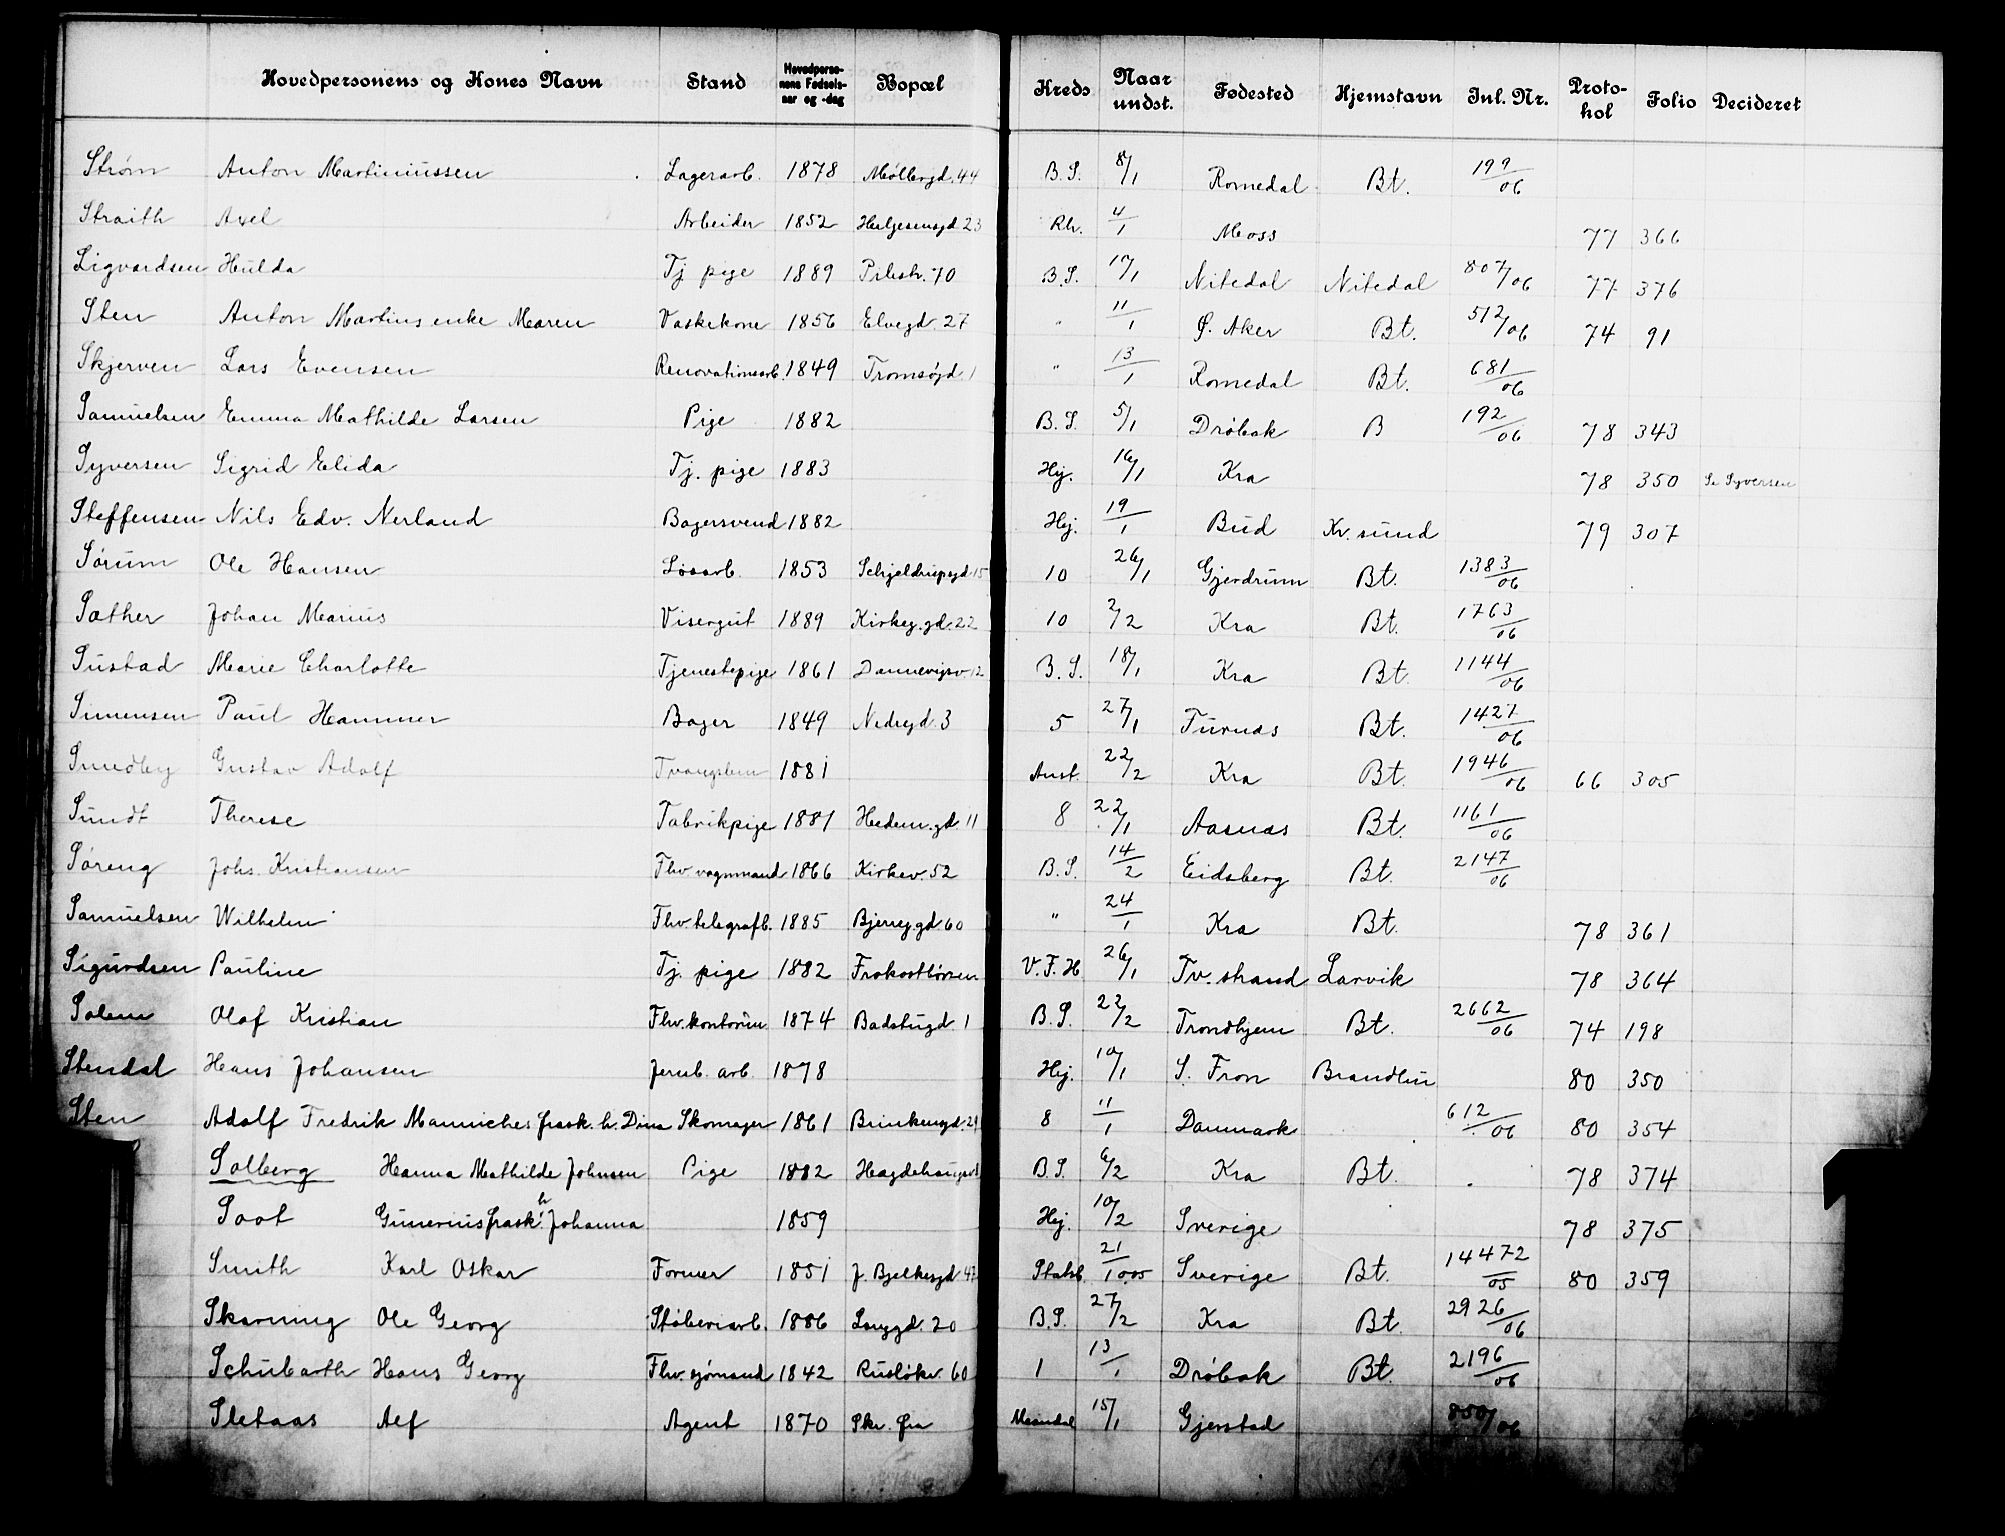 Hovedpersonens og Kones Navn Stand Hovedpersonens Fødselsaar og -dag Bopæl Kreds Naar undst. Fødested Hjemstavn Inl. Nr. Protokol Folio Decideret
Strøm Anton Martiniussen Lagerarb. 1878 Møllergd. 44 B. S. 8/1 Romedal Bt. 199/06
Straith Axel Arbeider 1852 Helgesensgd 23 Rh. 4/1 Moss 77 366
Sigvardsen Hulda Tj pige 1889 Pilestr. 70 B. S. 17/1 Nitedal Nitedal 807/06 77 376
Sten Anton Martins enke Maren Vaskekone 1856 Elvegd. 27 " 11/1 Ø. Aker Bt. 512/06 74 91
Skjerven Lars Evensen Renovationsarb. 1849 Tromsøgd. 1 " 13/1 Romedal Bt. 681/06
Samuelsen Emma Mathilde Larsen Pige 1882 B. S. 5/1 Drøbak B 192/06 78 343
Syversen Sigrid Elida Tj. pige 1883 Hej. 16/1 Kra 78 350 Se Syversen
Steffensen Nils Edv. Nerland Bagersvend 1882 Hej. 19/1 Bud Kr. sund 79 307
Sørum Ole Hansen Løsarb. 1853 Schjeldrupsgd 15 10 26/1 Gjerdrum Bt. 1383/06
Sæther Johan Marius Visergut 1889 Kirkeg. gd. 22 10 2/2 Kra Bt. 1763/06
Sustad Marie Charlotte Tjenestepige 1861 Dannevigsv. 12 B. S. 18/1 Kra Bt. 1144/06
Simensen Paul Hammer Bager 1849 Nedregd. 3 5 27/1 Furnæs Bt. 1427/06
Sundby Gustav Adolf Tvangslem 1881 Anst. 22/2 Kra Bt. 1946/06 66 305
Sundt Therese Fabrikpige 1881 Hedem. gd. 11 8 22/1 Aasnæs Bt. 1161/06
Søreng Johs. Kristiansen Fhv. vognmand 1866 Kirkev. 52 B. S. 14/2 Eidsberg Bt. 2147/06
Samuelsen Wilhelm Fhv. telegrafb. 1885 Bjerreg. gd. 60 " 24/1 Kra Bt. 78 361
Sigurdsen Pauline Tj. pige 1882 Frokostbørsen V. F. H 26/1 Tv. strand Larvik 78 364
Salem Olaf Kristian Fhv. kontorm 1874 Badstugd 1 B. S. 22/2 Trondhjem Bt. 2662/06 74 198
Stendal Hans Johansen Jernb. arb. 1878 Hej. 10/1 S. Fron Brandbu 80 350
Sten Adolf Fredrik Manniches frask. h. Dina Skomager 1861 Brinkengd. 21 8 11/1 Danmark 612/06 80 354
Solberg Hanna Mathilde Johnsen Pige 1882 B. S. 6/2 Kra Bt. 78 374
Soot Gunerius frask. h. Johanna 1859 Hej. 10/2 Sverige 78 375
Smith Karl Oskar Former 1851 J. Bjelkesgd 47 Statsb. 21/10.05 Sverige Bt. 14472/05 80 359
Skarning Ole Georg Støberiarb. 1886 Langgd. 20 B. S. 27/2 Kra Bt. 2926/06
Schubarth Hans Georg Fhv. sjømand 1842 Rusløkv. 60 1 13/1 Drøbak Bt. 2196/06
Sletaas Alf Agent 1870 Mandal 15/1 Gjerstad 850/06